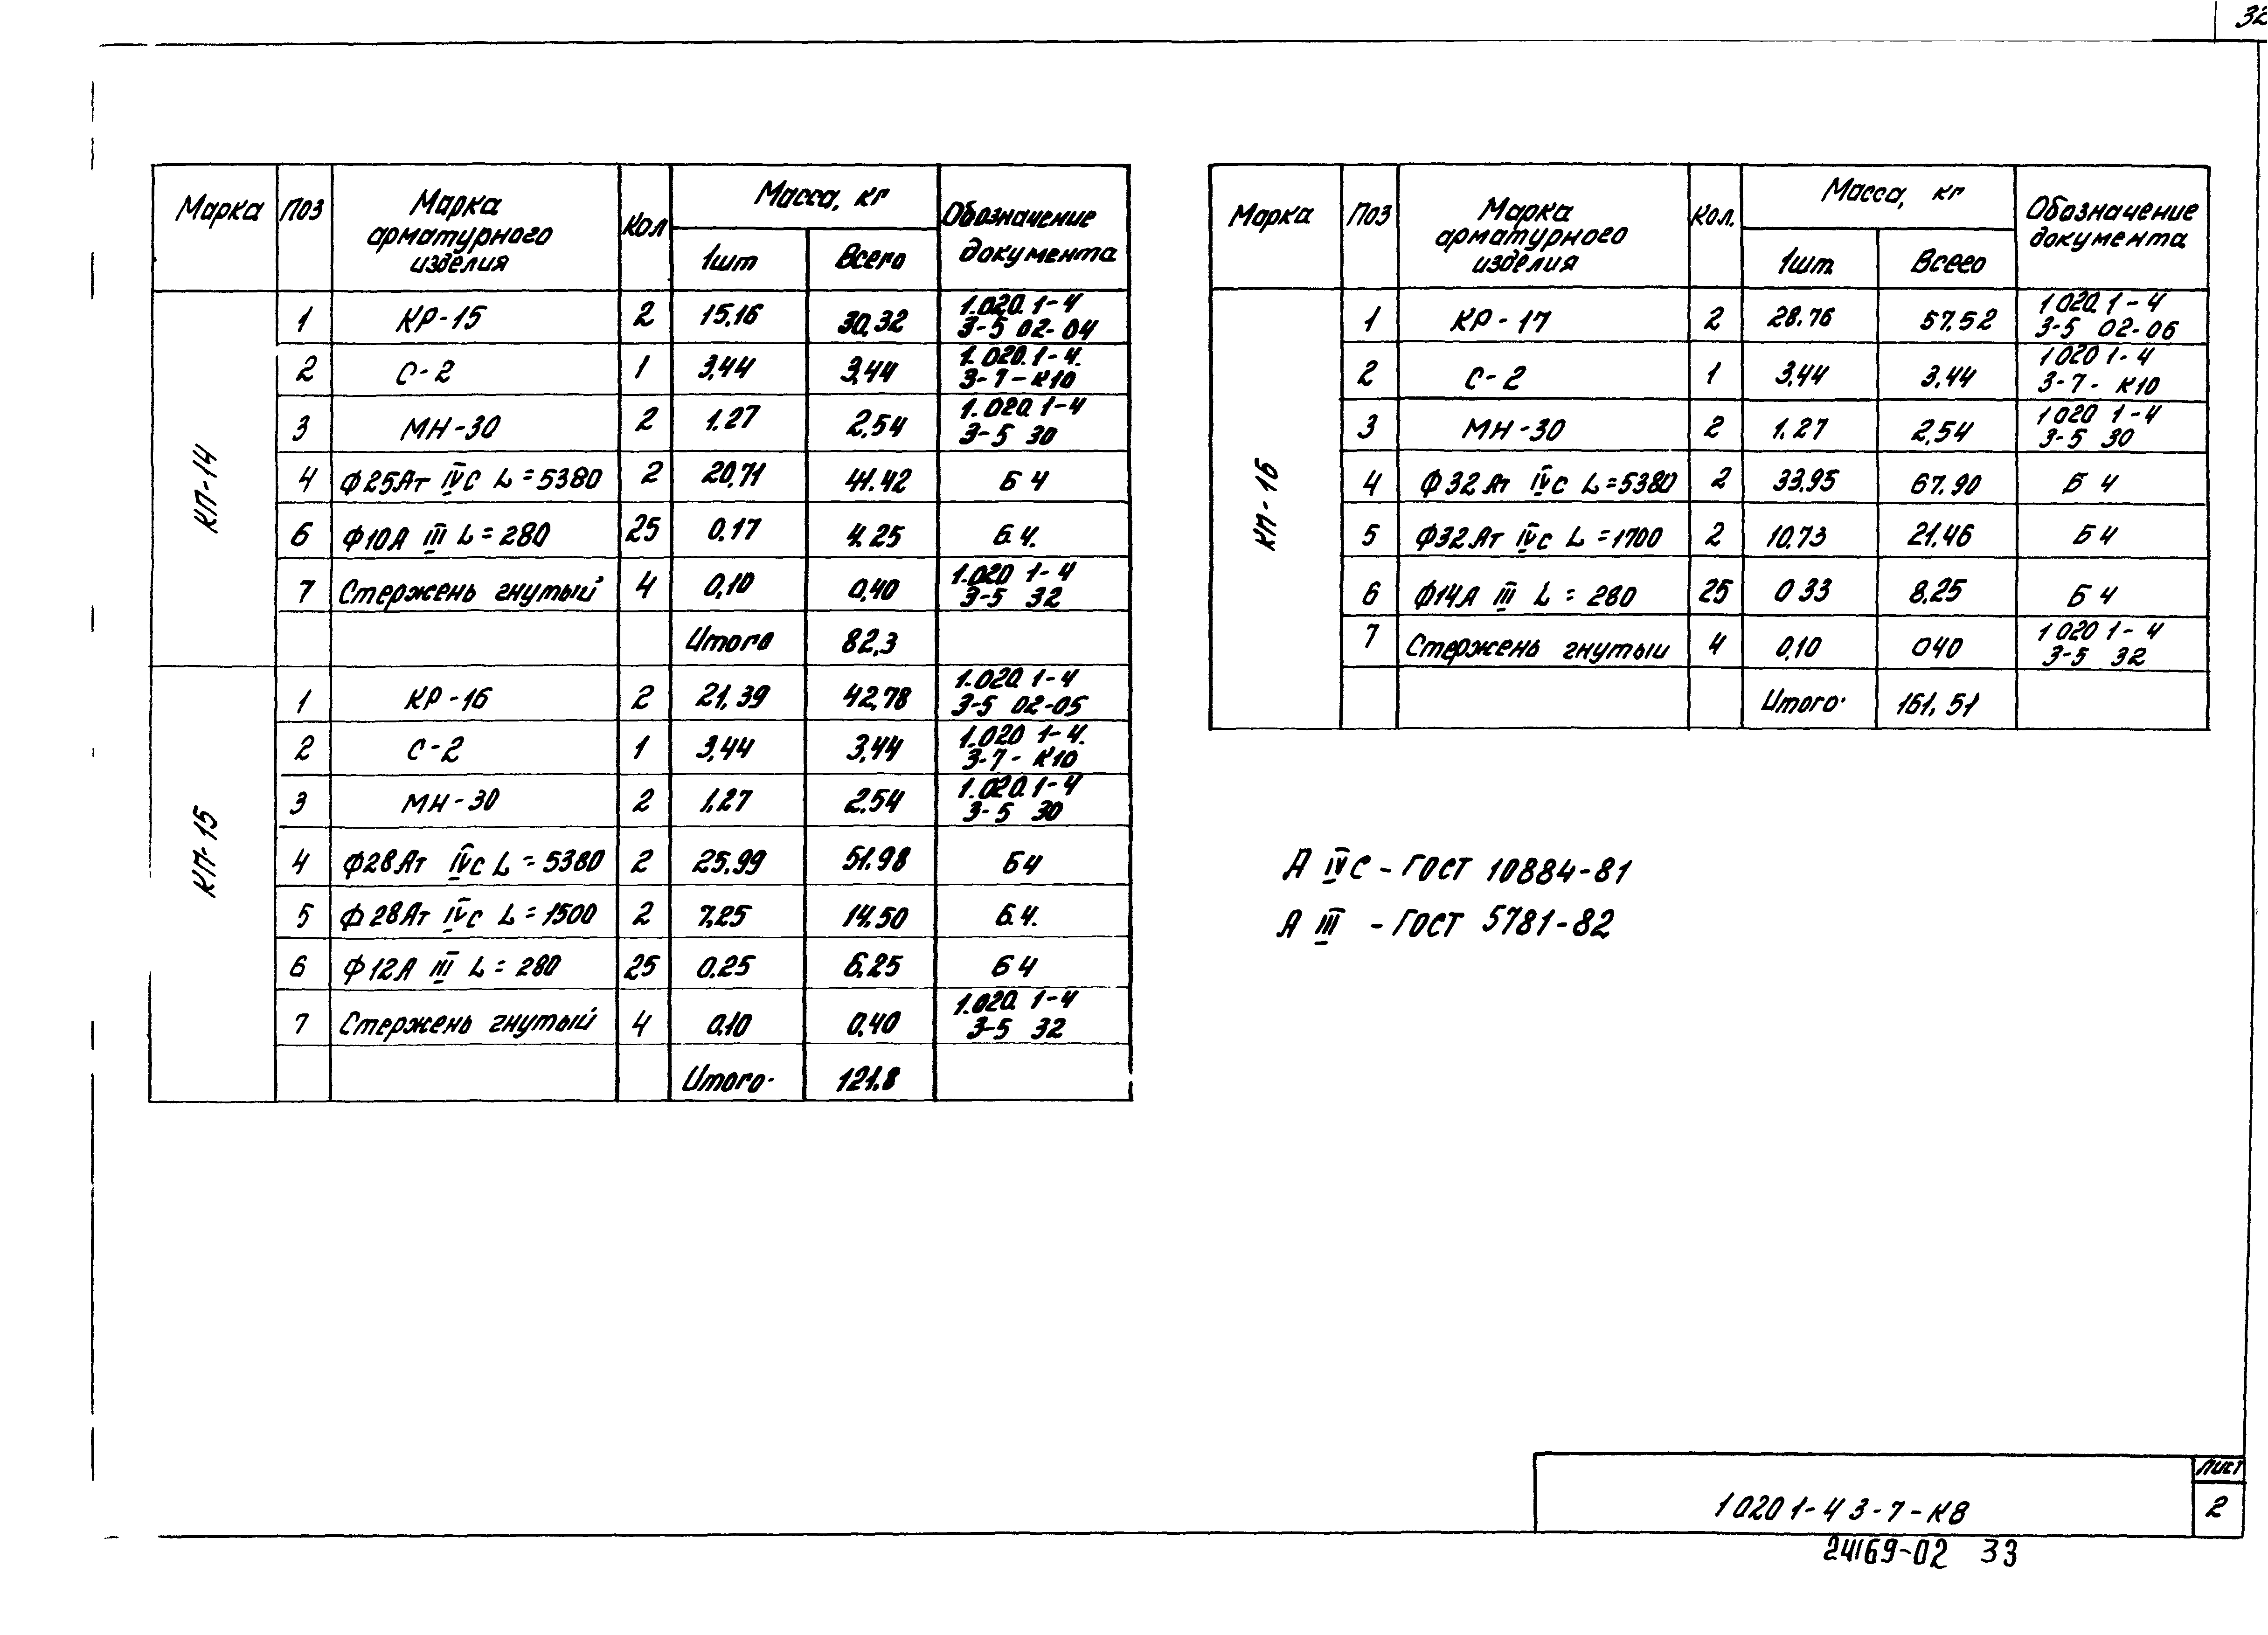 32
Марка ПОЗ Марка арматурного изделия Кол Масса, кг Обозначение документа
1шт Всего
КП-14
1 КР-15 2 15,16 30,32 1.020.1-4 3-5 02-04
2 С-2 1 3,44 3,44 1.020.1-4. 3-7-К10
3 МН-30 2 1.27 2,54 1.020.1-4 3-5 30
4 Ф25Ат IVС L=5380 2 20,71 41.42 Б Ч
6 Ф10А III L=280 25 0,17 4.25 Б.Ч.
7 Стержень гнутый 4 0,10 0,40 1.020 1-4 3-5 32
Итого 82,3
КП-15
1 КР-16 2 21,39 42,78 1.020.1-4 3-5 02-05
2 С-2 1 3,44 3,44 1.020 1-4. 3-7-К10
3 МН-30 2 1,27 2.54 1.020.1-4 3-5 30
4 Ф28Ат IVс L=5380 2 25.99 51.98 БЧ
5 Ф28Ат IVс L=1500 2 7,25 14.50 Б.Ч.
6 Ф12А III L=280 25 0.25 6,25 БЧ
7 Стержень гнутый 4 0,10 0,40 1.020. 1-4 3-5 32
Итого· 121.8
Марка ПОЗ Марка арматурного изделия Кол. Масса, кг Обозначение документа
1шт. Всего
КП-16
1 КР-17 2 28.76 57.52 1 020.1-4 3-5 02-06
2 С-2 1 3,44 3,44 1 020 1-4 3-7-К10
3 МН-30 2 1.27 2,54 1 020 1-4 3-5 30
4 Ф32Ат IVс L=5380 2 33.95 67.90 Б Ч
5 Ф32Ат IVс L=1700 2 10,73 21.46 БЧ
6 Ф14А III L=280 25 0 33 8.25 Б Ч
7 Стержень гнутыи 4 0,10 040 1 020 1-4 3-5 32
Итого· 161,51
А IVС - ГОСТ 10884-81
А III - ГОСТ 5781-82
1 020 1-4 3-7-К8
Лист
2
24169-02 33